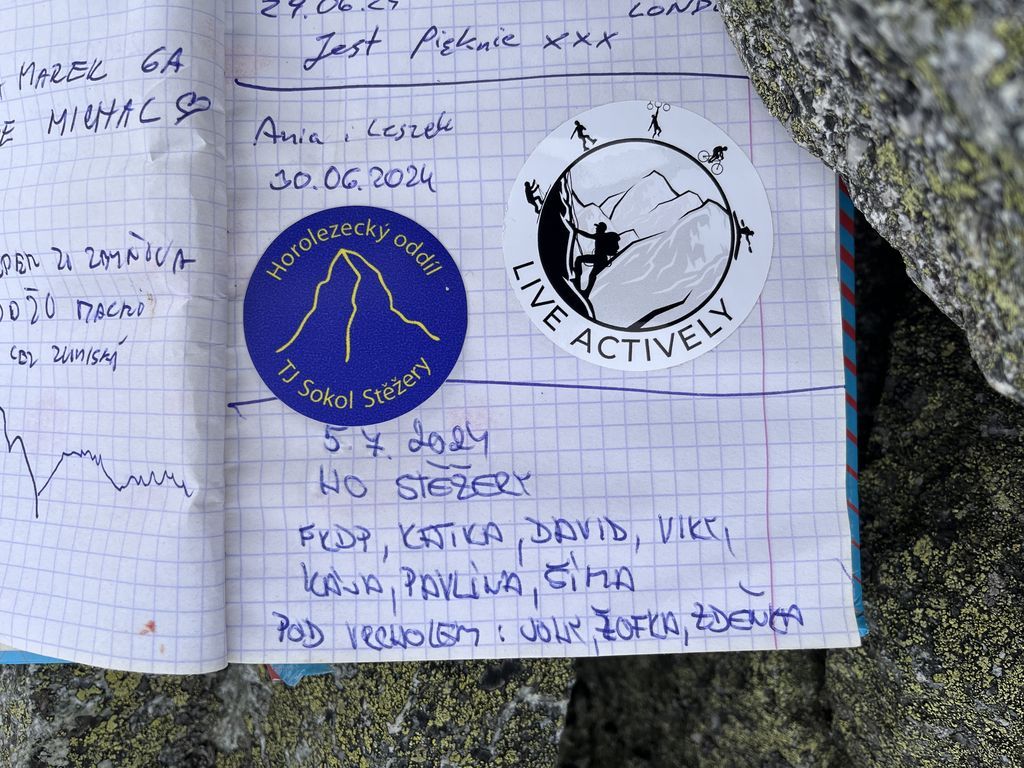 MAREK 6A
MICHAL
MACHO
29.06.24
LOND
Jest Pięknie xxx
Ania i Leszek
30.06.2024
Horolezecký oddíl
TJ Sokol Stěžery
LIVE ACTIVELY
5.7.2024
HO STĚŽERY
KATKA, DAVID, VIKY,
KÁJA, PAVLÍNA, ŠÍMA
POD VRCHOLEM: JOLY, ŽOFKA, ZDEŇKA